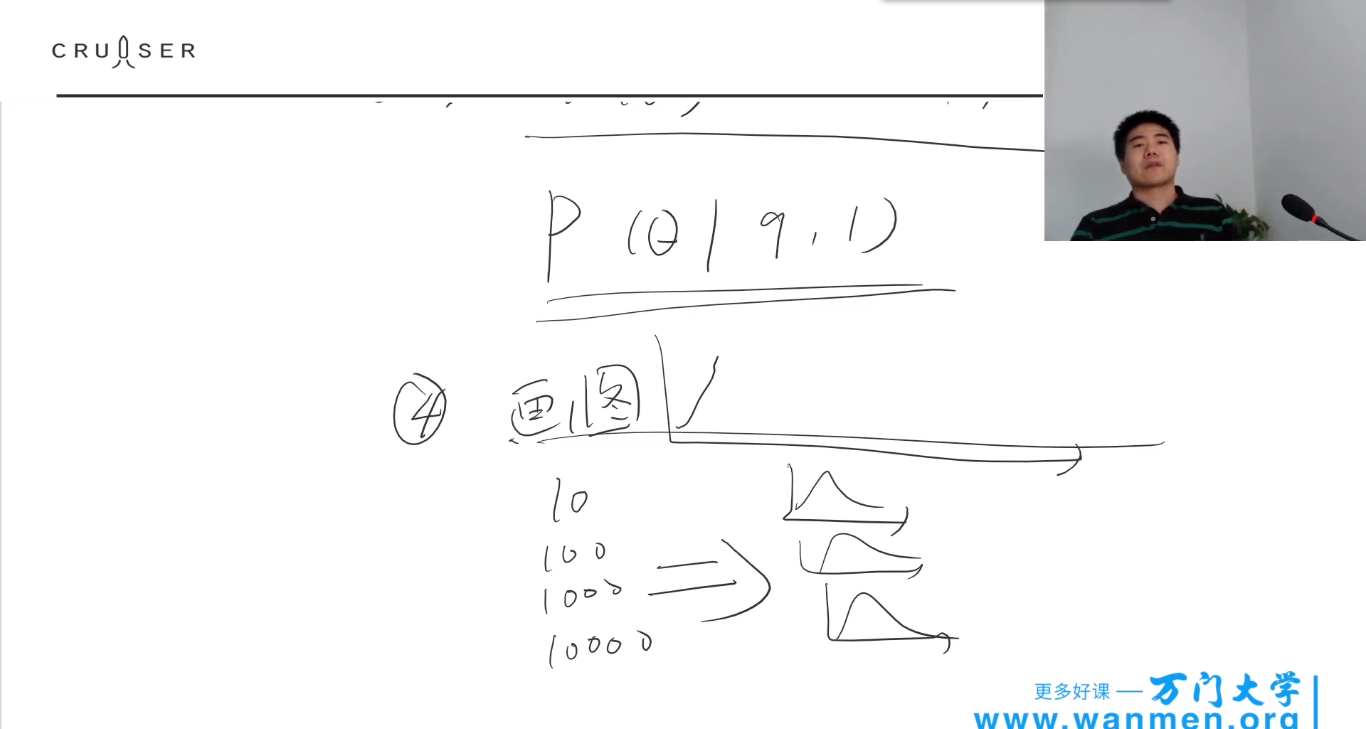 CRUISER
P(θ|9,1)
④ 画图
10
100
1000
10000
更多好课 — 万门大学
www.wanmen.org